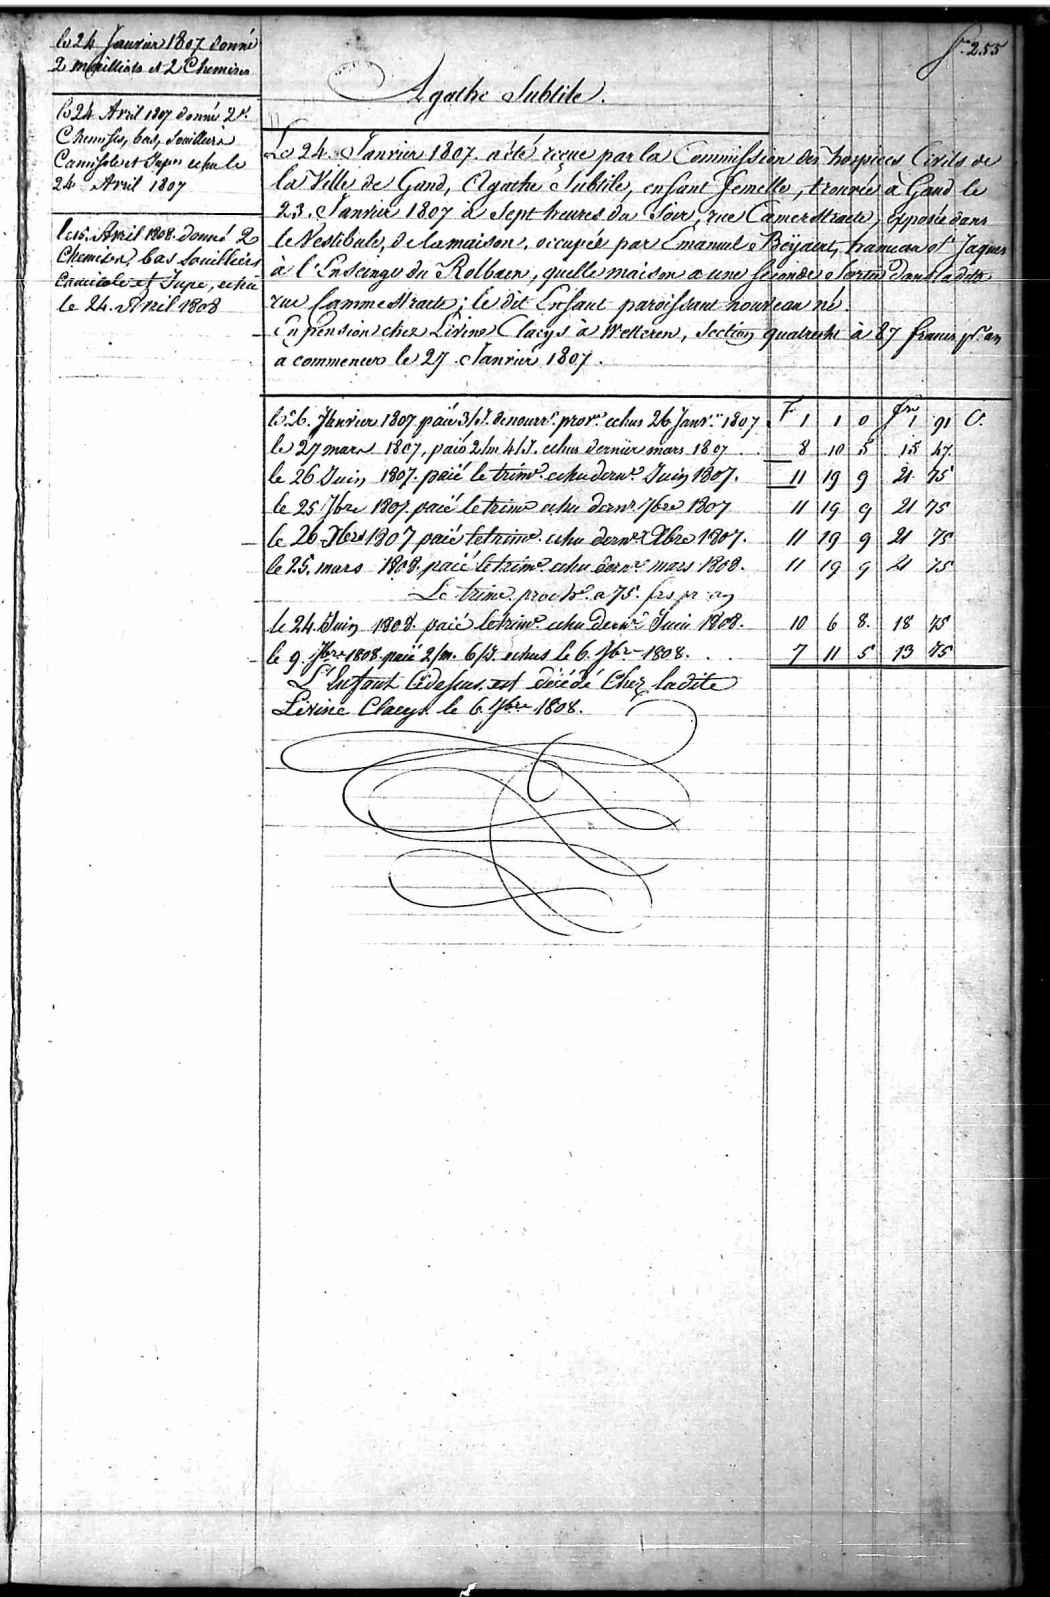 fo. 255
le 24 Janvier 1807 donné
2 maillots et 2 Chemises
le 24 Avril 1807 donné 2
Chemises, bas, Souilliers
Camisole et Jupe echu le
24 Avril 1807
le 15. Avril 1808 donné 2
Chemises, bas Souilliers
Camisole et Jupe, echu
le 24. Avril 1808
Agathe Subtile.
Le 24. Janvier 1807. a été reçue par la Commission des hospices Civils de
la Ville de Gand, Agathe Subtile, enfant femelle, trouvée à Gand le
23. Janvier 1807 à Sept heures du Soir, rue Camerstraete, exposée dans
le Vestibule, de la maison, occupée par Emanuel Beÿaert, hameau st. Jaques
à l'Enseinge du Rolbaen, quelle maison a une Seconde Sortie dans ladite
rue Cammestraete; le dit Enfant paroissant nouveau né.
En pension chez Livine Claeys à Wetteren, Section quatre à 87 francs pr. an
a commencer le 27 Janvier 1807.
le 26. Janvier 1807 paié 3/st. de nourre. prove. echus 26 Janvr. 1807 F 1 1 0 frs 1 91 C.
le 27 mars 1807, paié 2/m 4/J. echus dernier mars 1807 . 8 10 5 15 47
le 26 Juin 1807. paié le trime. echu dernr. Juin 1807. 11 19 9 21 75
le 25 7bre 1807. paié le trime echu dernr. 7bre 1807 11 19 9 21 75
le 26 Xbre 1807 paié le trime. echu dernr. Xbre 1807. 11 19 9 21 75
le 25. mars 1808. paié le trime. echu dernr. mars 1808. 11 19 9 21 75
Le trime. proche. a 75. frs pr an
le 24 Juin 1808. paié le trime. echu dernr. Juin 1808. 10 6 8. 18 75
le 9. 7bre 1808 paié 2/m. 6/J. echus le 6. 7bre 1808. . . 7 11 5 13 75
L'Enfant Cidessus est décédé Chez ladite
Livine Claeys le 6. 7bre 1808.